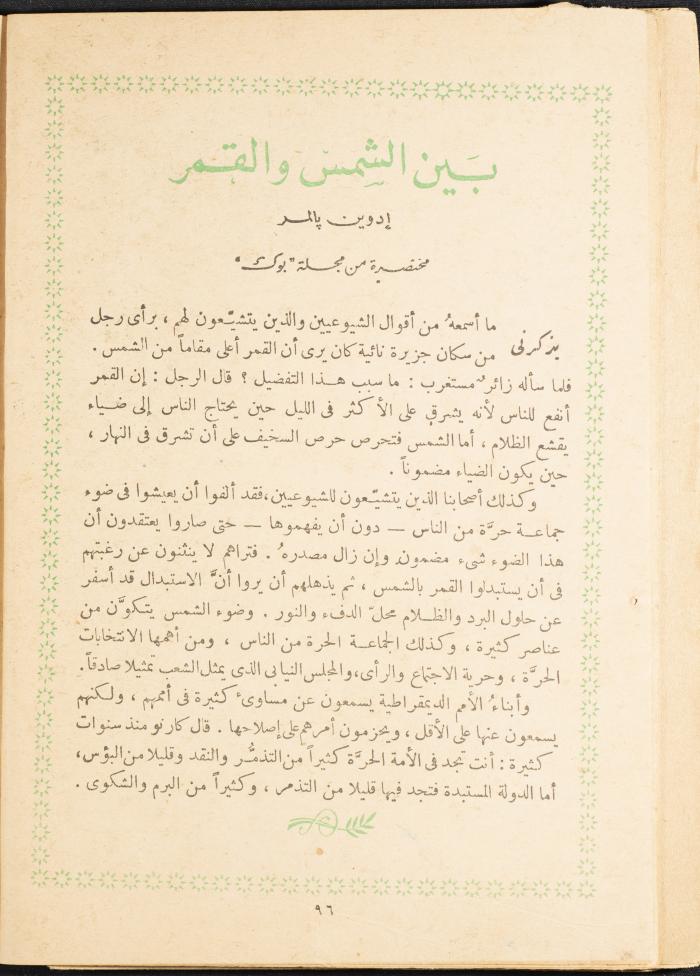 بَين الشمس والقمر
إدوين پالمر
مختصرة من مجلة "بوك"
يذكرنى ما أسمعهُ من أقوال الشيوعيين والذين يتشيّعون لهم ، برأى رجل
من سكان جزيرة نائية كان يرى أن القمر أعلى مقاماً من الشمس .
فلما سأله زائرٌ مستغرب : ما سبب هـذا التفضيل ؟ قال الرجل : إن القمر
أنفع للناس لأنه يشرق على الأكثر فى الليل حين يحتاج الناس إلى ضياء
يقشع الظلام ، أما الشمس فتحرص حرص السخيف على أن تشرق فى النهار ،
حين يكون الضياء مضموناً .
وكذلك أصحابنا الذين يتشيّعون للشيوعيين ،فقد ألفوا أن يعيشوا فى ضوء
جماعـة حرَّة من الناس — دون أن يفهموها — حتى صاروا يعتقدون أن
هذا الضوء شىء مضمون وإن زال مصدرهُ . فتراهم لا ينثنون عن رغبتهم
فى أن يستبدلوا القمر بالشمس ، ثم يذهلهم أن يروا أنَّ الاستبدال قد أسفر
عن حلول البرد والظـلام محلّ الدفء والنور . وضوء الشمس يتكوَّن من
عناصر كثيرة ، وكذلك الجماعـة الحرة من الناس ، ومن أهمها الانتخابات
الحرَّة ، وحرية الاجتماع والرأى،والمجلس النيابى الذى يمثل الشعب تمثيلا صادقاً.
وأبناءُ الأمم الديمقراطية يسمعون عن مساوىء كثيرة فى أممهم ، ولكنهم
يسمعون عنها على الأقل ، ويحزمون أمرهم على إصلاحها . قال كارنو منذ سنوات
كثيرة : أنت تجد فى الأمة الحرَّة كثيراً من التذمُّر والنقد وقليلا من البؤس،
أما الدولة المستبدة فتجد فيها قليلا من التذمر ، وكثيراً من البرم والشكوى .
٩٦